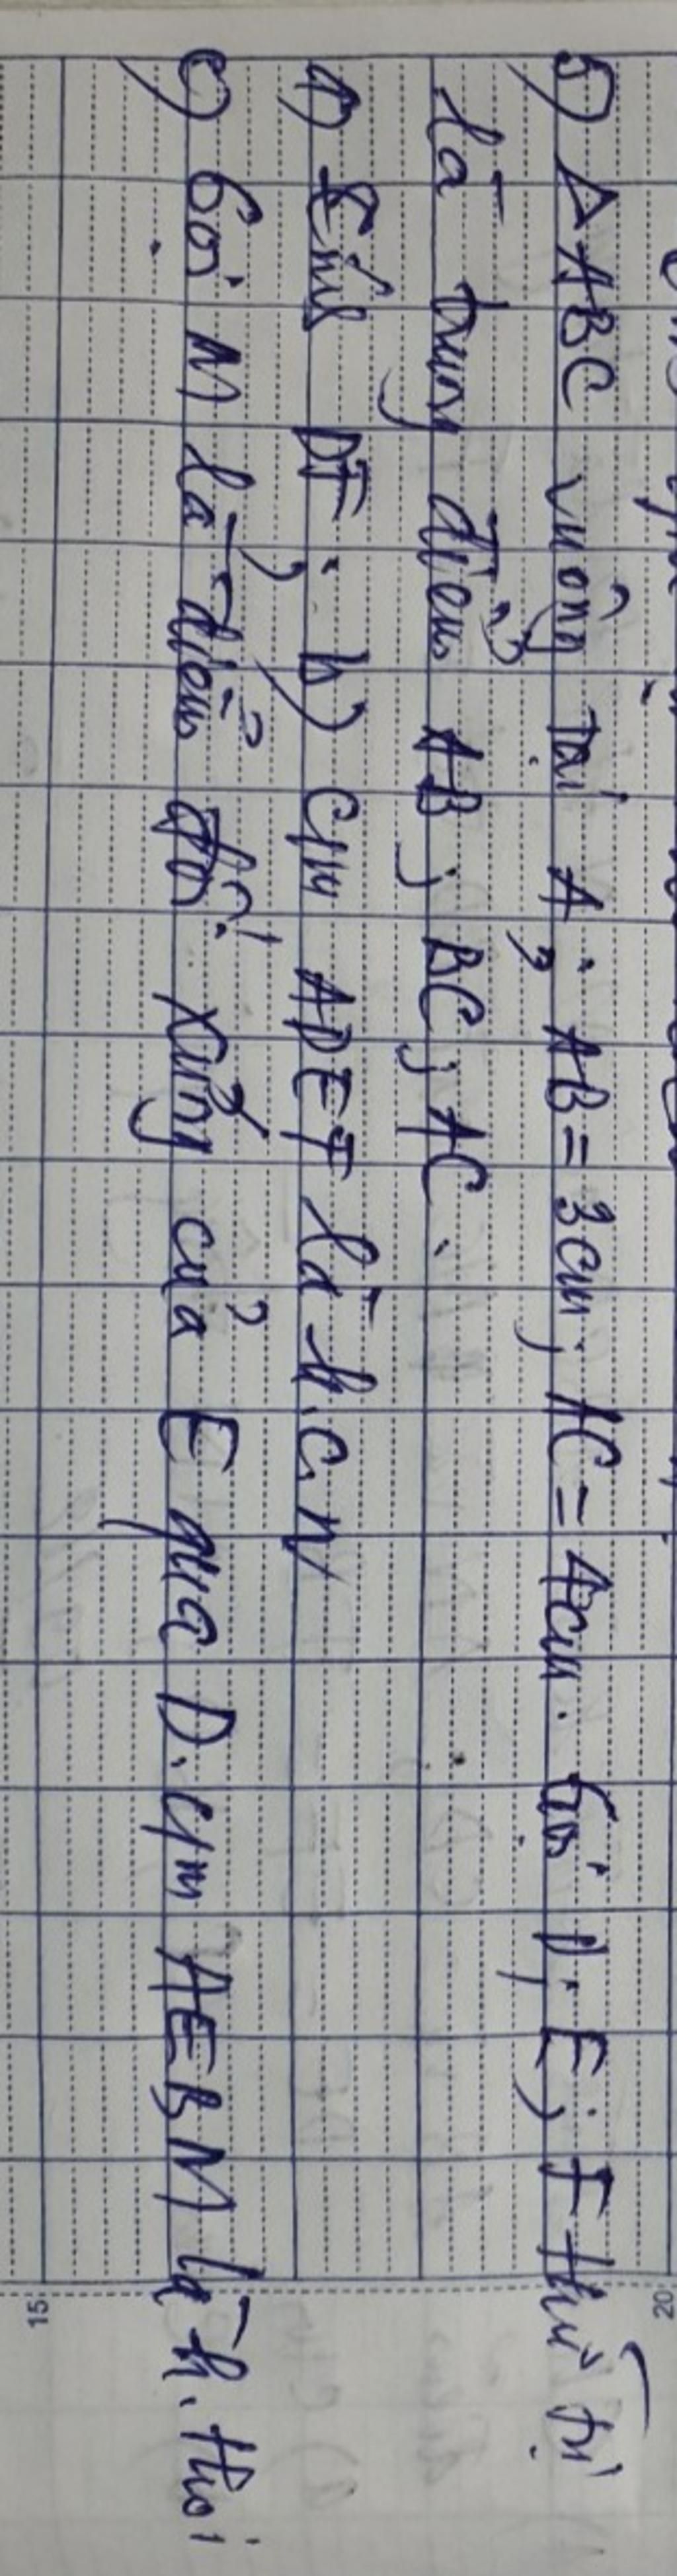 5) ΔABC vuông tại A; AB = 3cm; AC = 4cm. Gọi D; E; F thứ tự
là trung điểm AB; BC; AC.
a) Tính DF; b) C/m ADEF là h.c.n
c) Gọi M là điểm đối xứng của E qua D. C/m AEBM là h.thoi
20
15